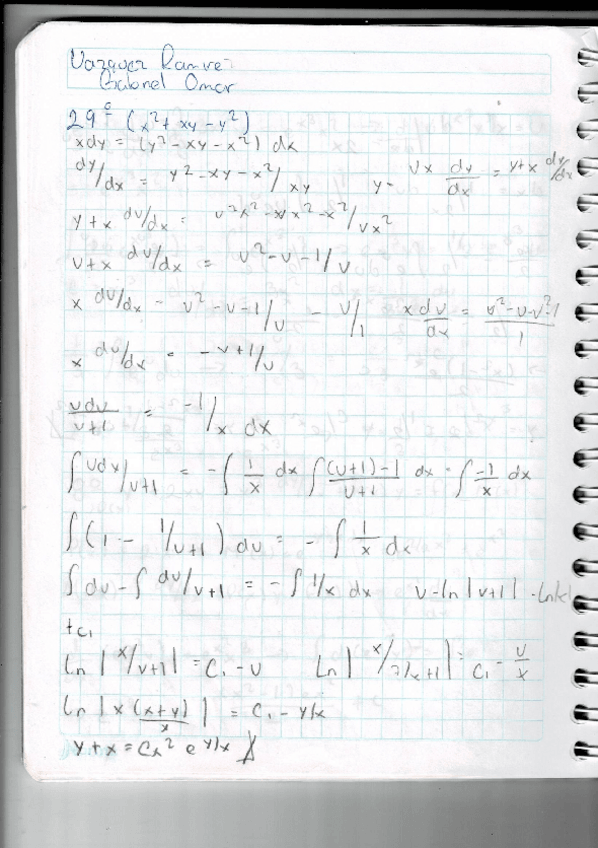 Vazquez Ramirez
Gabriel Omar
29º (x²+xy-y²)
xdy = (y²-xy-x²) dx
dy/dx = y²-xy-x²/xy    y= vx    dy/dx = y+x dv/dx
y+x dv/dx = v²x²-vx²-x²/vx²
v+x dv/dx = v²-v-1/v
x dv/dx = v²-v-1/v - v/1    x dv/dx = v²-v-v²-1/1
x dv/dx = -v+1/v
vdv/v+1 = -1/x dx
∫ vdx/v+1 = -∫ 1/x dx    ∫ (v+1)-1/v+1 dx = ∫ -1/x dx
∫(1 - 1/v+1) dv = -∫ 1/x dx
∫ dv - ∫ dv/v+1 = -∫ 1/x dx    v-ln|v+1| - ln|x|
+c₁
ln |x/v+1| = C₁-v    Ln| x/7/x+1| = C₁ - v/x
Ln |x (x+y)/x | = C₁ - y/x
y+x = Cx² e y/x